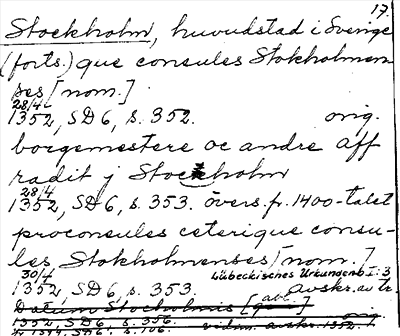 17.
Stockholm, huvudstad i Sverige
(forts.) que consules Stokholmen
ses [nom.]
28/4
1352, SD 6, s. 352. orig.
borgemestere oc andre aff
radit j Stocholm
28/4
1352, SD 6, s. 353. övers. fr. 1400-talet
proconsules ceterique consu-
les Stokholmenses [nom.]
30/4 Lübeckisches Urkundenb I:3
1352, SD 6, s. 353. avskr. av tr.
Datum Stocholmis [abl.]
1352, SD 6, s. 356. orig.
s. 106. vidim. avskr. 1352.